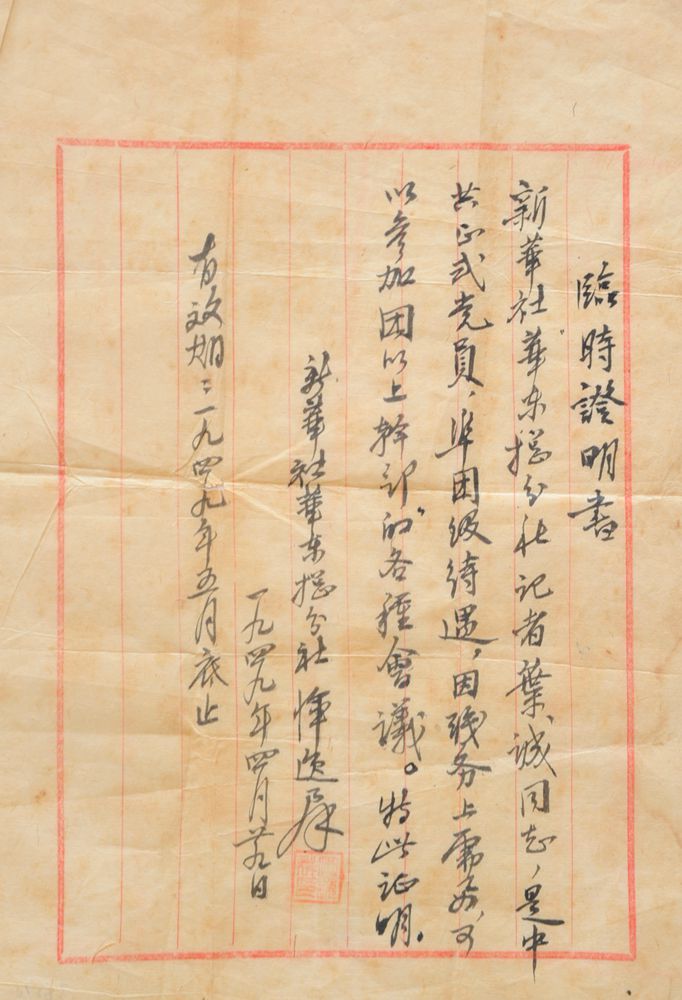 臨時證明書
新華社華东總分社记者葉诚同志，是中
共正式党員，準团级待遇，因职务上需要，可
以参加团以上幹部的各種會議。特此证明。
新華社華东總分社 惲逸群
一九四九年四月廿九日
有效期：一九四九年五月底止